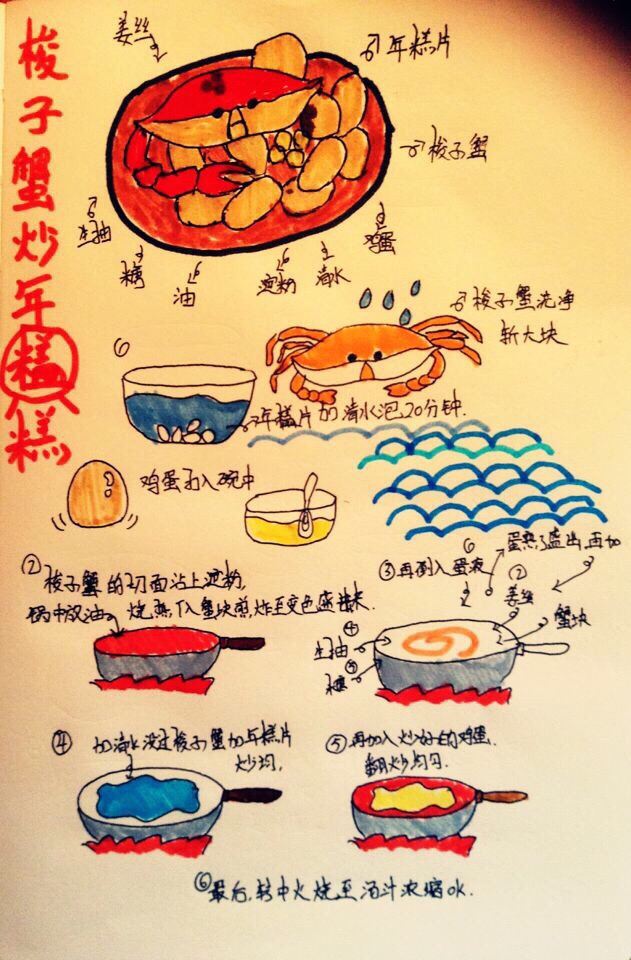 梭子蟹炒年糕糕
姜丝
年糕片
梭子蟹
生抽
糖
油
淀粉
清水
鸡蛋
梭子蟹洗净
斩大块
年糕片加清水泡20分钟.
鸡蛋打入碗中
② 梭子蟹的切面沾上淀粉,
锅中放油 烧热下入蟹块煎炸至变色盛出来
③ 再倒入蛋液
① 蛋熟了盛出,再加
② 姜丝
蟹块
④ 生抽
⑤ 糖
④ 加清水没过梭子蟹加年糕片
炒均,
⑤ 再加入炒好的鸡蛋.
翻炒均匀.
⑥ 最后,转中火烧至汤汁浓缩OK.